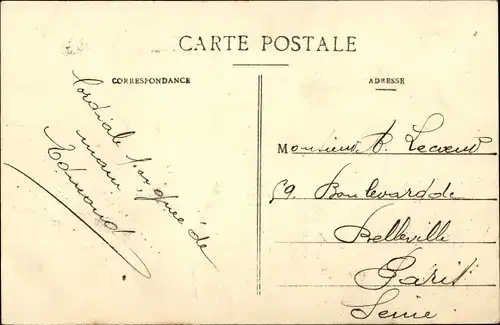 CARTE POSTALE
CORRESPONDANCE
Cordiale poignée de
main
Edmond
ADRESSE
Monsieur A. Lecoeur
59. Boulevard de
Belleville
Paris
Seine